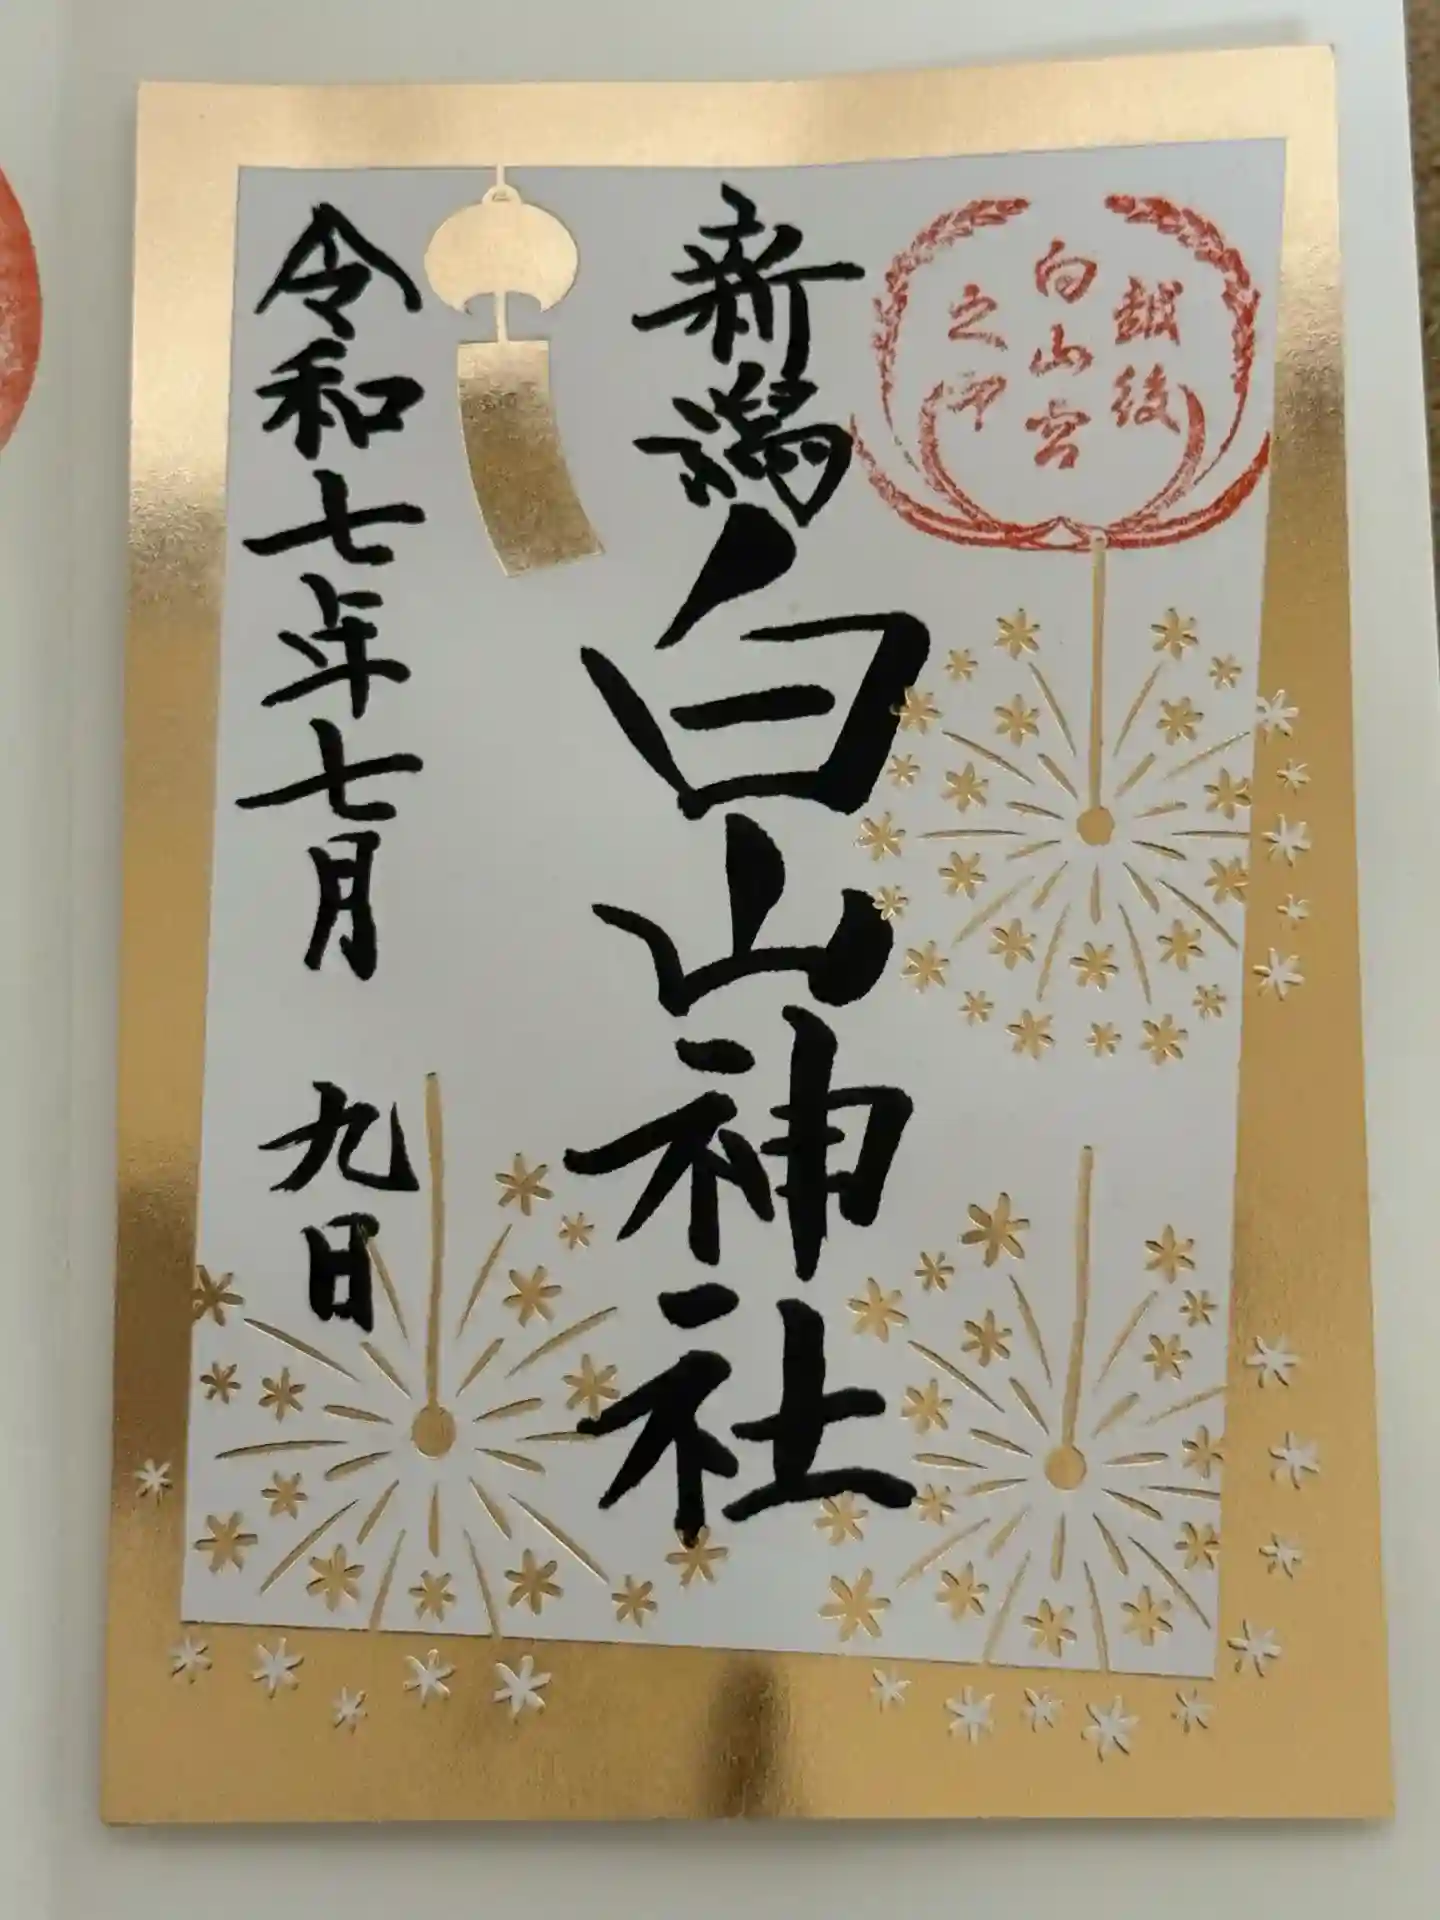 越後
白山宮
之印
新潟白山神社
令和七年七月 九日